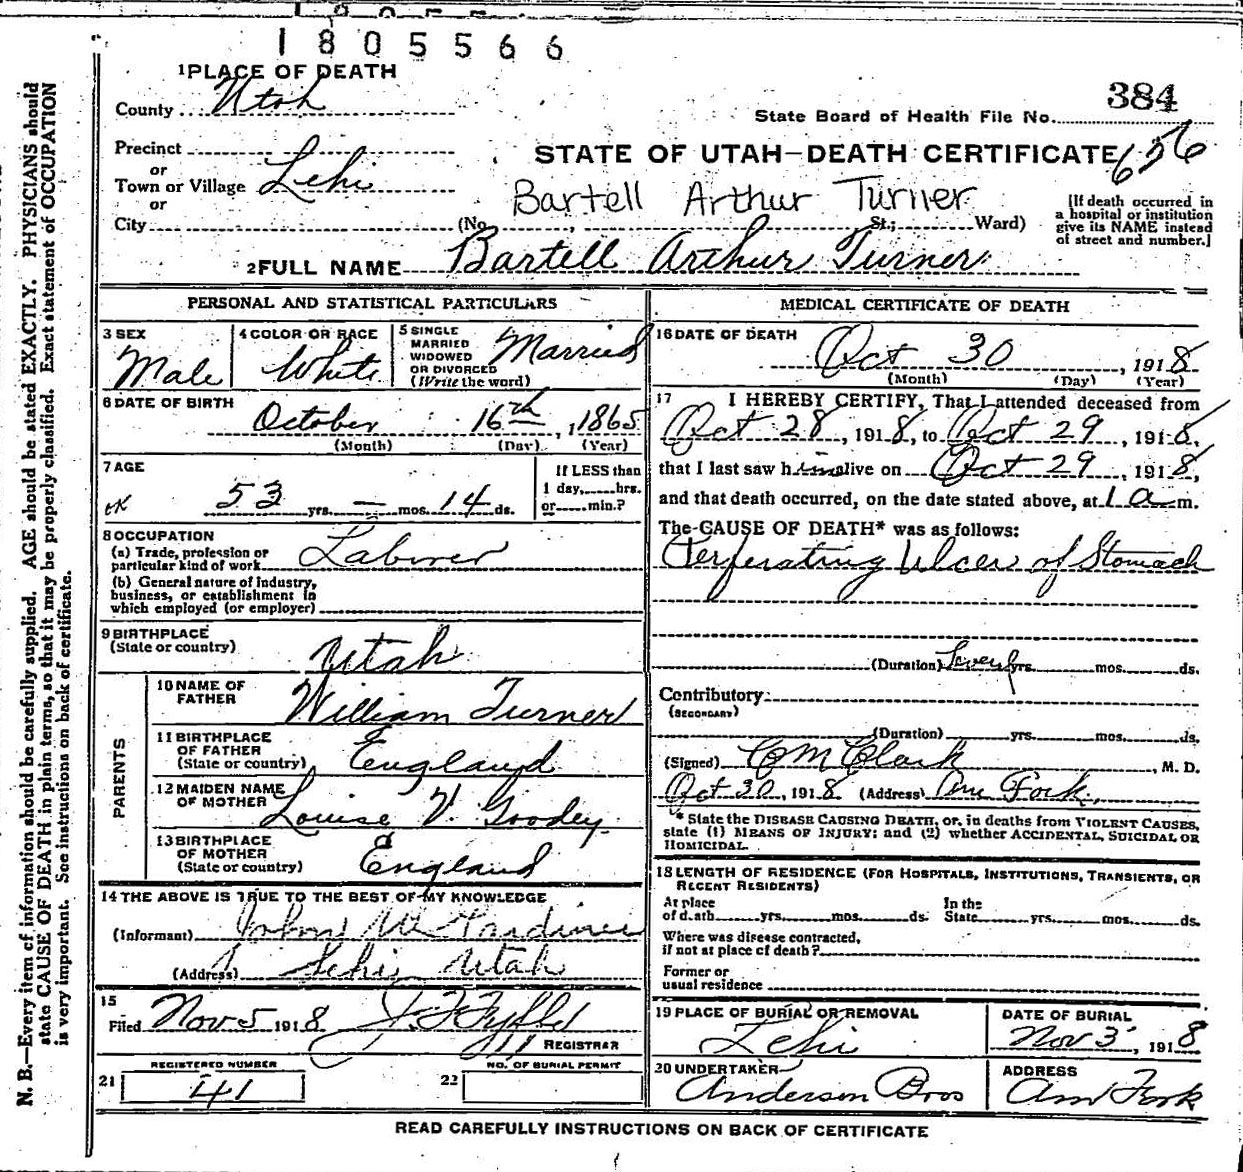 1805566
1 PLACE OF DEATH
County Utah
384
State Board of Health File No.
Precinct
or
STATE OF UTAH—DEATH CERTIFICATE 656
Town or Village Lehi
or
Bartell Arthur Turner
City (No. St.; Ward)
[If death occurred in
a hospital or institution
give its NAME instead
of street and number.]
2 FULL NAME Bartell Arthur Turner
PERSONAL AND STATISTICAL PARTICULARS
3 SEX
Male
4 COLOR OR RACE
White
5 SINGLE
MARRIED
WIDOWED
OR DIVORCED
(Write the word)
Married
6 DATE OF BIRTH
October 16th, 1865
(Month) (Day) (Year)
7 AGE
53 yrs. — mos. 14 ds.
If LESS than
1 day, hrs.
or min.?
8 OCCUPATION
(a) Trade, profession or
particular kind of work Laborer
(b) General nature of industry,
business, or establishment in
which employed (or employer)
9 BIRTHPLACE
(State or country)
Utah
PARENTS
10 NAME OF
FATHER
William Turner
11 BIRTHPLACE
OF FATHER
(State or country)
England
12 MAIDEN NAME
OF MOTHER
Louise V. Goodey
13 BIRTHPLACE
OF MOTHER
(State or country)
England
14 THE ABOVE IS TRUE TO THE BEST OF MY KNOWLEDGE
(Informant) John
(Address) Lehi Utah
15
Filed Nov 5 1918
REGISTRAR
REGISTERED NUMBER
21 41
NO. OF BURIAL PERMIT
22
MEDICAL CERTIFICATE OF DEATH
16 DATE OF DEATH
Oct 30, 1918
(Month) (Day) (Year)
17 I HEREBY CERTIFY, That I attended deceased from
Oct 28, 1918, to Oct 29, 1918,
that I last saw him alive on Oct 29, 1918,
and that death occurred, on the date stated above, at 1 a m.
The CAUSE OF DEATH* was as follows:
Perferating Ulcer of Stomach
(Duration) yrs. mos. ds.
Contributory
(SECONDARY)
(Duration) yrs. mos. ds.
(Signed) Clark, M. D.
Oct 30, 1918 (Address) Am Fork.
* State the DISEASE CAUSING DEATH, or, in deaths from VIOLENT CAUSES,
state (1) MEANS OF INJURY; and (2) whether ACCIDENTAL, SUICIDAL OR
HOMICIDAL.
18 LENGTH OF RESIDENCE (FOR HOSPITALS, INSTITUTIONS, TRANSIENTS, OR
RECENT RESIDENTS)
At place
of death yrs. mos. ds.
In the
State yrs. mos. ds.
Where was disease contracted,
if not at place of death?
Former or
usual residence
19 PLACE OF BURIAL OR REMOVAL
Lehi
DATE OF BURIAL
Nov 3, 1918
20 UNDERTAKER
Anderson Bros
ADDRESS
Am Fork
READ CAREFULLY INSTRUCTIONS ON BACK OF CERTIFICATE
N. B.—Every item of information should be carefully supplied. AGE should be stated EXACTLY. PHYSICIANS should
state CAUSE OF DEATH in plain terms, so that it may be properly classified. Exact statement of OCCUPATION
is very important. See instructions on back of certificate.